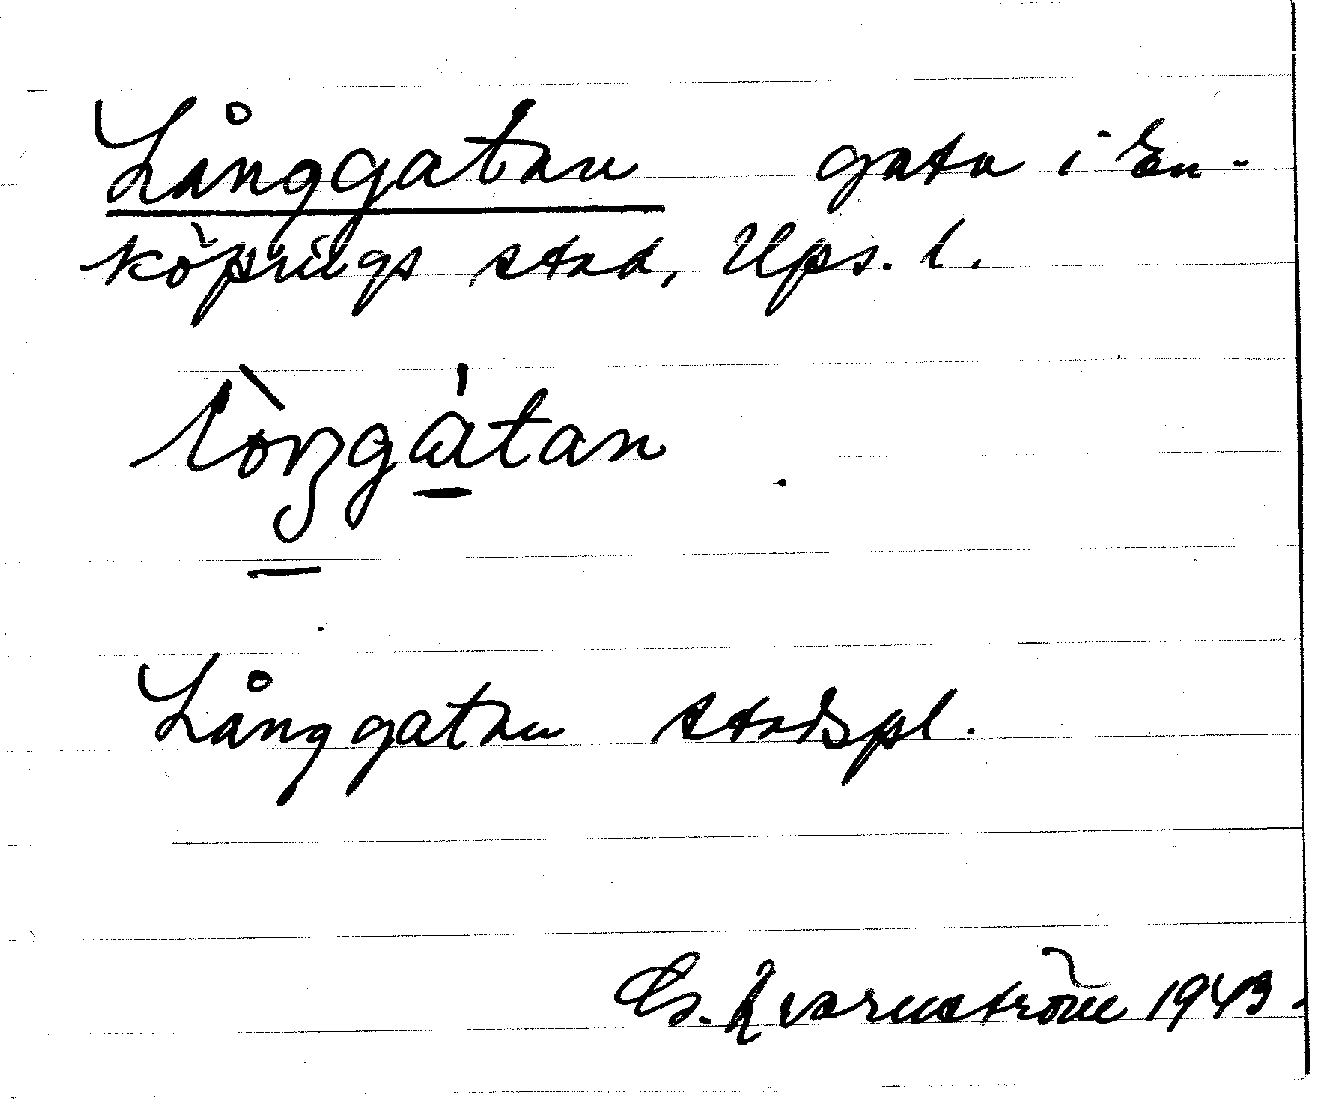 Långgatan gata i En-
köpings stad, Ups. l.
Långgatan stadspl.
G. Kvarnström 1943.